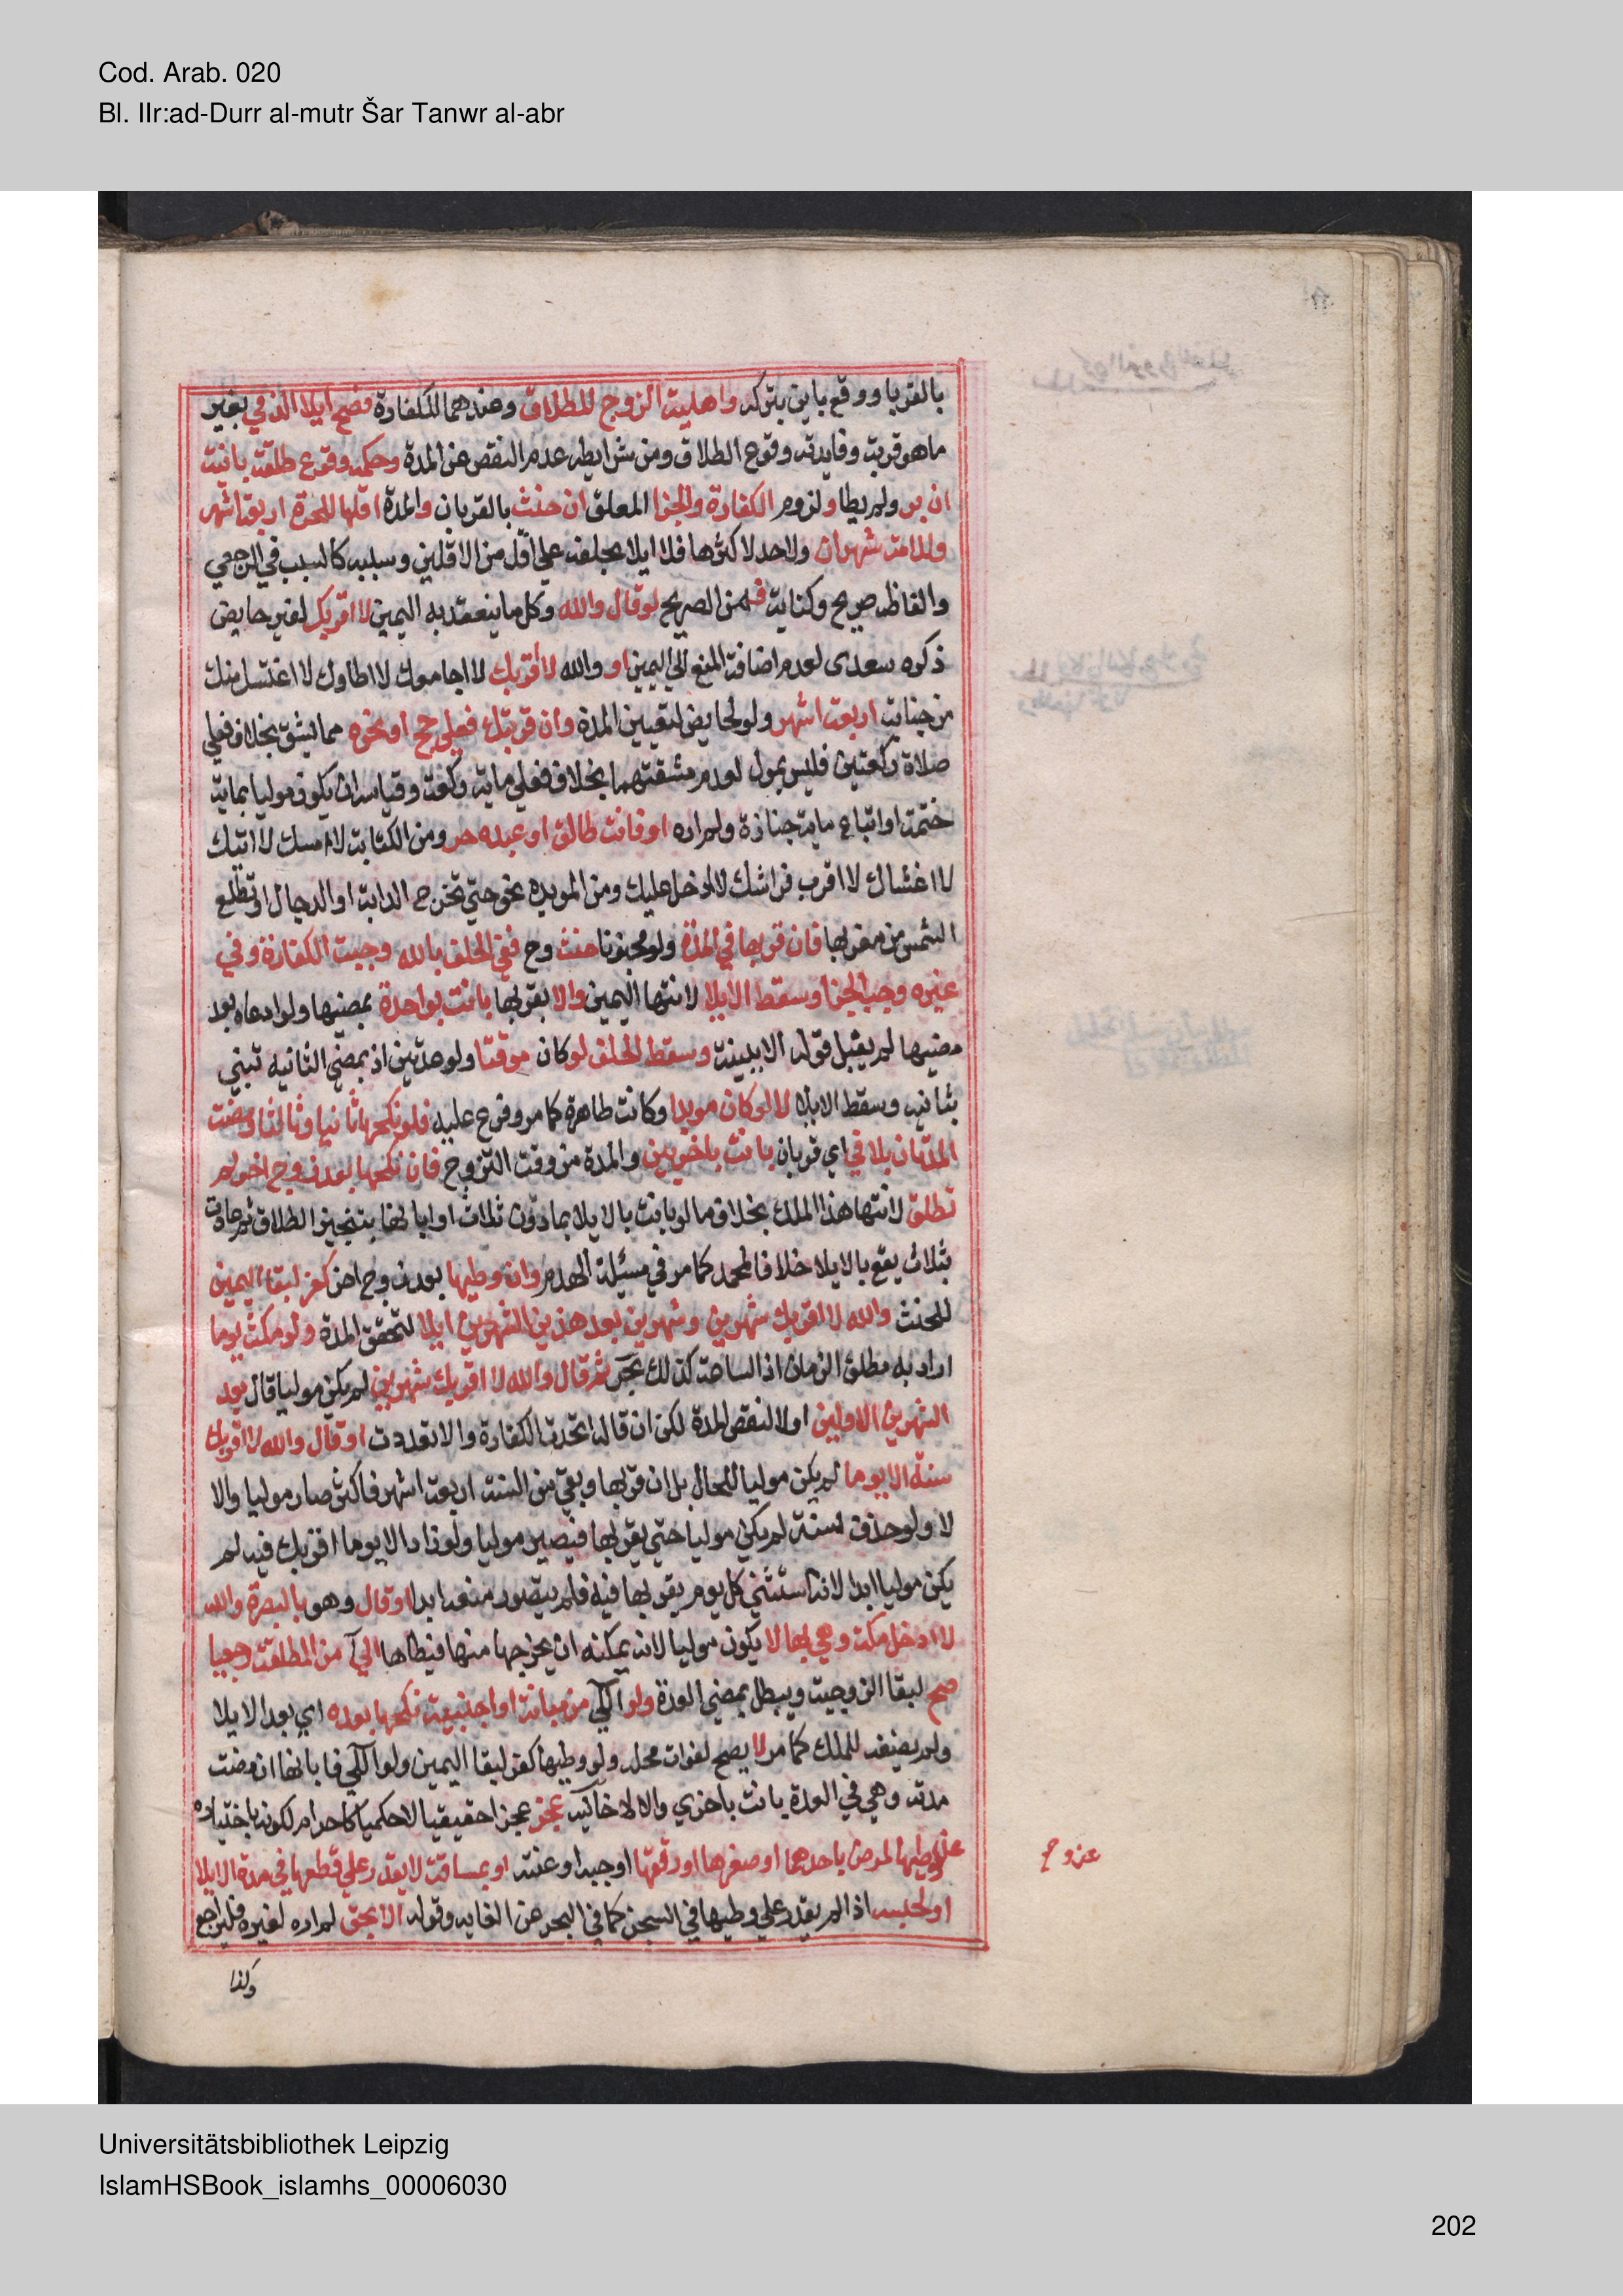 Cod. Arab. 020
Bl. IIr:ad-Durr al-mutr Šar Tanwr al-abr
بالقربا ووقع باين بتركه واهلية الزوج للطلاق وعندهما للكفارة فصح ايلا الذمي بغير
ماهو قربة وفايدته وقوع الطلاق ومن شرايطه عدم النقص عن المدة وحكمه وقوع طلقة باينة
ان بر ولم يطا ولزوم الكفارة والجزا المعلق ان حنث بالقربان والمدة اقلها للحرة اربعة اشهر
وللامة شهران ولاحد لاكثرها فلا ايلا بحلفه علي اقل من الاقلين وسببه كالسبب في الرجعي
والفاظه صريح وكناية فمن الصريح لو قال والله وكل ما ينعقد به اليمين لا اقربك لغير حايض
ذكره سعدى لعدم اضافة المنع الي اليمين او والله لا اقربك لا اجامعك لا اطاوك لا اغتسل منك
من جنابة اربعة اشهر ولو لحايض لتعيين المدة وان قربتك فعلي حج او نحوه مما يشق بخلاف فعلي
صلاة ركعتين فليس بمول لعدم مشقتهما بخلاف فعلي ماية ركعة وقياسه ان يكون موليا بماية
ختمة او اتباع ماية جنازة ولم اره او فانت طالق او عبده حر ومن الكناية لا امسك لا اتيك
لا اغشاك لا اقرب فراشك لا ادخل عليك ومن المويد نحو حتي تخرج الدابة او الدجال او تطلع
الشمس من مغربها فان قربها في المدة ولو مجنونا حنث وح ففي الحلف بالله وجبت الكفارة وفي
غيره وجب الجزا وسقط الايلا لانتها اليمين والا بقربها بانت بواحدة بمضيها ولو ادعاه بعد
مضيها لم يقبل قوله الا ببينة وسقط الحلف لو كان موقتا ولو مدتين اذ بمضي الثانية تبني
بثانية وسقط الايلا لا لو كان مويدا وكانت طاهرة كما مر وفرع عليه فلو نكحها ثانيا وثالثا ومضت
المدتان بلا في اي قربان بانت باخريين والمدة من وقت التزوج فان نكحها بعد زوج اخر لم
تطلق لانتها هذا الملك بخلاف ما لو بانت بالايلا بما دون ثلاث او ابانها بتنجيز الطلاق ثم عادت
بثلاث يقع بالايلا خلافا لمحمد كما مر في مسئلة الهدم وان وطيها بعد زوج اخر كفر لبقا اليمين
للحنث والله لا اقربك شهرين وشهرين بعد هذين الشهرين ايلا لتحقق المدة ولو مكث يوما
اراد به مطلق الزمان اذ الساعة كذلك بحر ثم قال والله لا اقربك شهرين لم يكن موليا قال بعد
الشهرين الاولين اولا لنقص المدة لكن ان قاله اتحدت الكفارة والا تعددت او قال والله لا اقربك
سنة الا يوما لم يكن موليا للحال بل ان قربها وبقي من السنة اربعة اشهر فاكثر صار موليا والا
لا ولو حذف سنة لم يكن موليا حتي يقربها فيصير موليا ولو زاد الا يوما اقربك فيه لم
يكن موليا ابدا لانه استثني كل يوم يقربها فيه فلم يتصور منعه ابدا او قال وهو بالبصرة والله
لا ادخل مكة وهي بها لا يكون موليا لانه يمكنه ان يخرجها منها فيطاها الي من المطلقة رجعيا
صح لبقا الزوجية ويبطل بمضي العدة ولو الي من مبانة او اجنبية نكحها بعده اي بعد الايلا
ولم يضفه للملك كما مر لا يصح لفوات محله ولو وطيها كفر لبقا اليمين ولو الي فابانها ان مضت
مدته وهي في العدة بانت باخري والا لا خانية عجز عجزا حقيقيا لا حكميا كاحرام لكونه باختياره
عن وطيها لمرض باحدهما او صغرها او رتقها او جبه او عنته او بمسافة لا يقدر علي قطعها في مدة الايلا
او لحبسه اذا لم يقدر علي وطيها في السجن كما في البحر عن الغاية وقوله لا بحق لم اره لغيره فليراجع
وكذا
Universitätsbibliothek Leipzig
IslamHSBook_islamhs_00006030
202